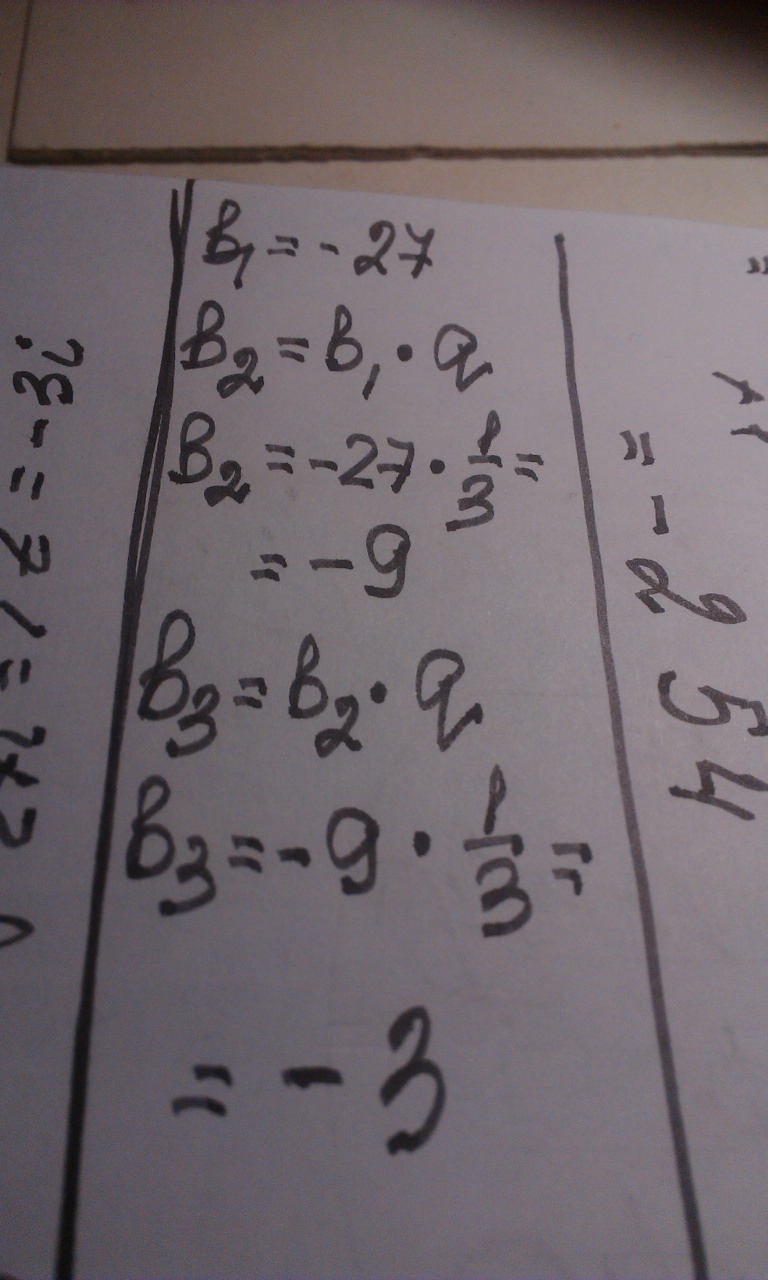 b₁ = - 27
b₂ = b₁ · q
b₂ = -27 · 1/3 =
= - 9
b₃ = b₂ · q
b₃ = - 9 · 1/3 =
= - 3
= - 254
= - 3i